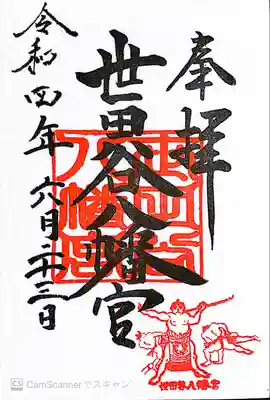 奉拝
世田谷八幡宮
令和四年 六月二十三日
世田谷八幡宮
CS CamScannerでスキャン